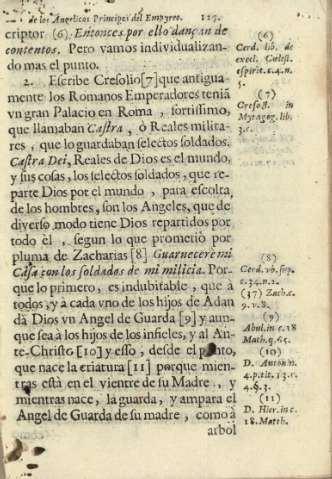 de los Angelicos Principes del Empyreo.
criptor (6) Entonces por ello dançan de
contentos. Pero vamos individualizan-
do mas el punto.
2. Escribe Cresolio[7] que antigua-
mente los Romanos Emperadores teniā
vn gran Palacio en Roma, fortissimo,
que llamaban Castra, ò Reales milita-
res, que lo guardaban selectos soldados.
Castra Dei, Reales de Dios es el mundo,
y sus cosas, los selectos soldados, que re-
parte Dios por el mundo, para escolta,
de los hombres, son los Angeles, que de
diverso modo tiene Dios repartidos por
todo èl, segun lo que prometiò por
pluma de Zacharias [8] Guarnecere mi
Casa con los soldados de mi milicia. Por-
que lo primero, es indubitable, que à
todos, y à cada vno de los hijos de Adan
dà Dios vn Angel de Guarda [9] y aun-
que sea à los hijos de los infieles, y al An-
te-Christo [10] y esso, desde el punto,
que nace la criatura [11] porque mien-
tras està en el vientre de su Madre, y
mientras nace, la guarda, y ampara el
Angel de Guarda de su madre, como à
arbol
(6)
Cerd. lib. de
excel. Cælest.
spirit. c.4.n.
5.
(7)
Cresol. in
Mystagog. lib.
3.c.
(8)
Cerd. vb. sup.
c.34.n.2.
(37) Zach.c.
9.v.8.
(9)
Abul. in c.18
Math.q.65.
(10)
D. Antonin.
4.p.tit.13.c.
4.§.3.
(11)
D. Hier. in c.
18.Matth.